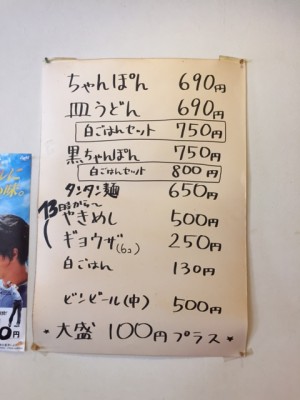 ちゃんぽん 690円
皿うどん 690円
白ごはんセット 750円
黒ちゃんぽん 750円
白ごはんセット 800円
タンタン麺 650円
13時から〜
やきめし 500円
ギョウザ(6コ) 250円
白ごはん 130円
ビンビール(中) 500円
* 大盛 100円プラス *
味。
0円